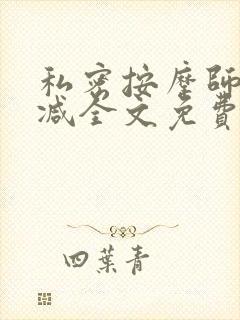 私密按摩師
减全文免費
四葉青